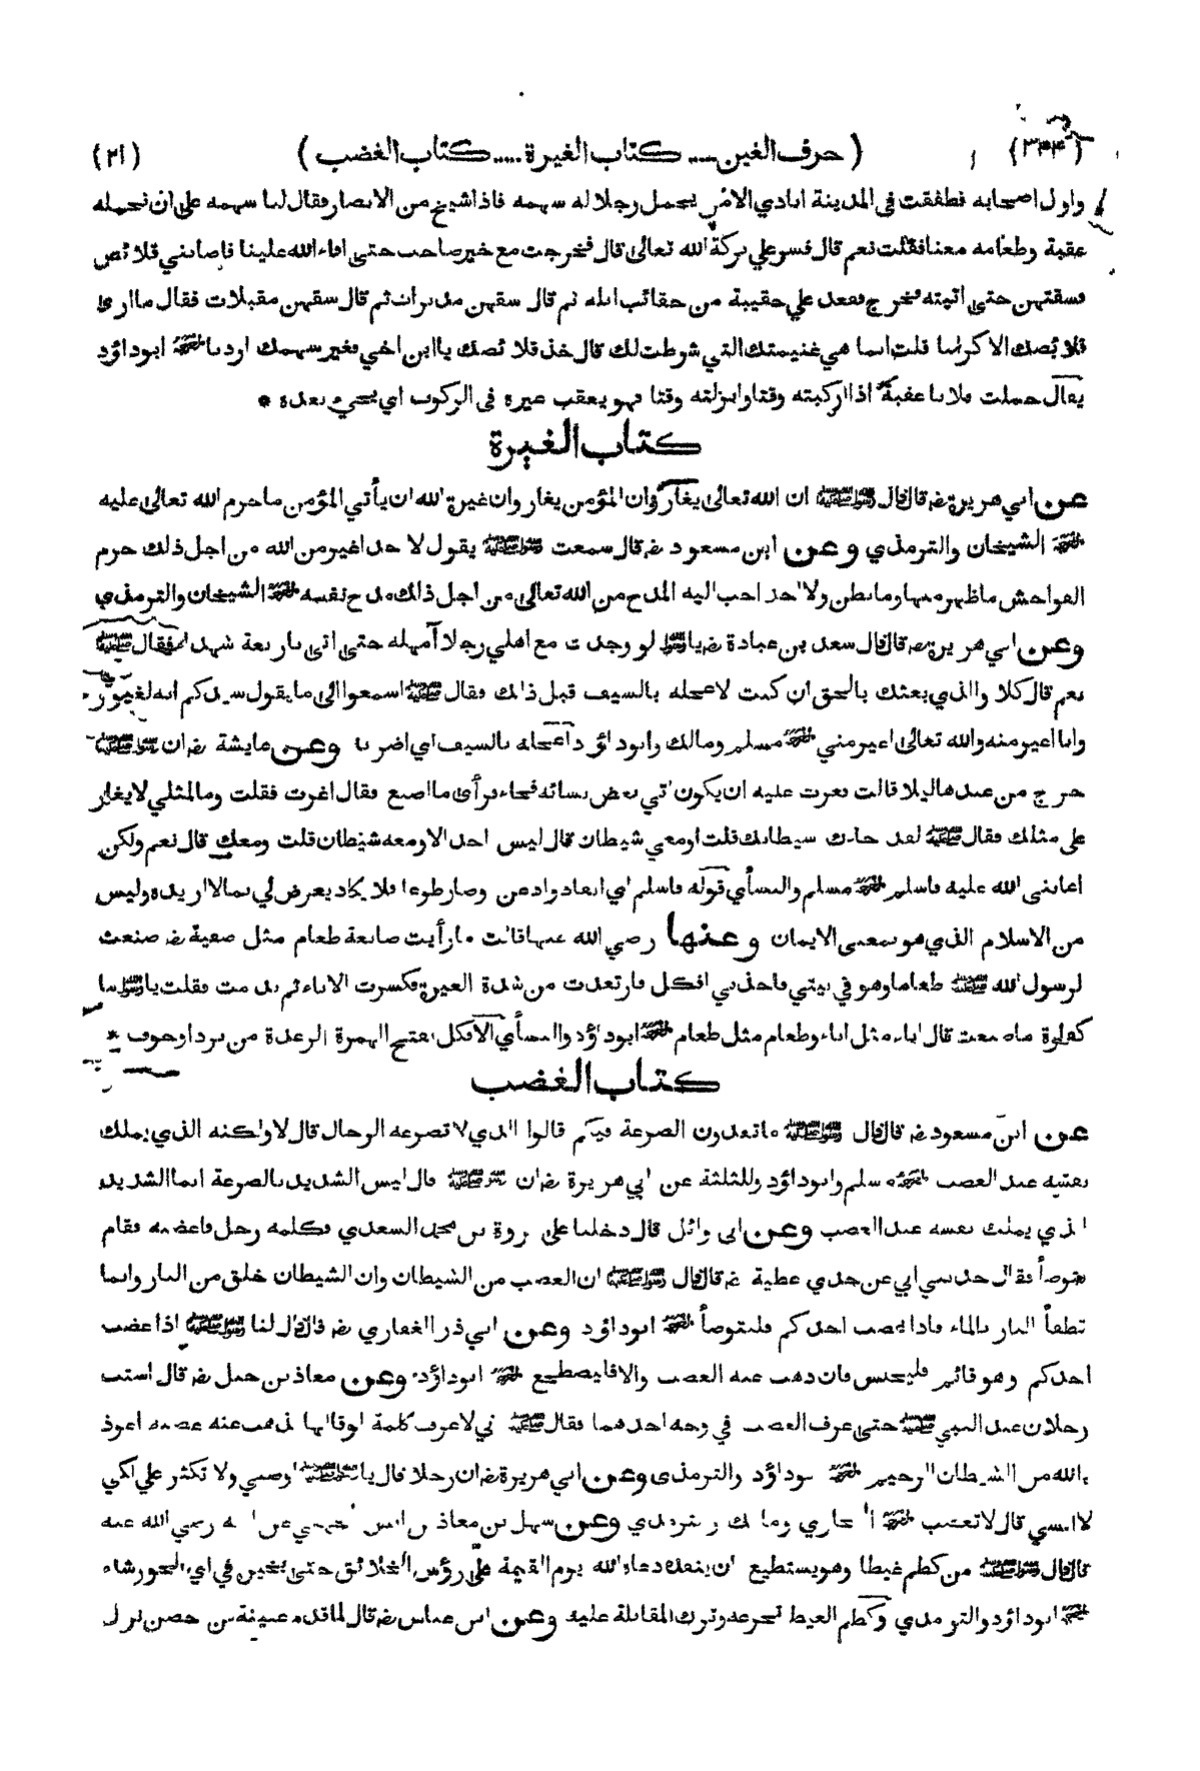 (٣٤٤) ( حرف الغين .... كتاب الغيرة ..... كتاب الغضب ) (٢١)
واول اصحابه فطفقت فى المدينة انادي الامن يحمل رجلا له سهمه فاذا شيخ من الانصار فقال لنا سهمه على ان نحمله
عقبة وطعامه معنا فقلت نعم قال فسر علي بركة الله تعالى قال فخرجت مع خير صاحب حتى افاء الله علينا فاصابني قلائص
فسقتهن حتى اتيته فخرج فقعد علي حقيبة من حقائب ابله ثم قال سقهن مدبرات ثم قال سقهن مقبلات فقال ما ارى
قلائصك الا كراما قلت انما هي غنيمتك التي شرطت لك قال خذ قلائصك يا ابن اخي فغير سهمك اردنا ابوداؤد
يقال حملت فلانا عقبة اذا اركبته وقتا وانزلته وقتا فهو يعقب غيره فى الركوب اي يجيء بعده *
كتاب الغيرة
عن ابي هريرة رض قال قال رسول الله ﷺ ان الله تعالى يغار وان المؤمن يغار وان غيرة الله ان يأتي المؤمن ما حرم الله تعالى عليه
الشيخان والترمذي وعن ابن مسعود رض قال سمعت رسول الله ﷺ يقول لا احد اغير من الله من اجل ذلك حرم
الفواحش ما ظهر منها وما بطن ولا احد احب اليه المدح من الله تعالى من اجل ذلك مدح نفسه الشيخان والترمذي
وعن ابي هريرة رض قال قال سعد بن عبادة رض يا رسول الله لو وجدت مع اهلي رجلا آمهله حتى اتى باربعة شهداء فقال ﷺ
نعم قال كلا والذي بعثك بالحق ان كنت لاعجله بالسيف قبل ذلك فقال ﷺ اسمعوا الى ما يقول سيدكم انه لغيور
وانا اغير منه والله تعالى اغير مني مسلم ومالك وابوداؤد اعجله بالسيف اي اضربه وعن عايشة رض ان رسول الله ﷺ
خرج من عندها ليلا قالت فغرت عليه ان يكون اتي بعض نسائه فجاء فرأى ما اصنع فقال اغرت فقلت وما لمثلي لا يغار
على مثلك فقال ﷺ لقد جاءك شيطانك قلت اومعي شيطان قال ليس احد الا ومعه شيطان قلت ومعك قال نعم ولكن
اعانني الله عليه فاسلم مسلم والنسأي قوله فاسلم اي انقاد واذعن وصار طوعا فلا يكاد يعرض لي بما لا اريده وليس
من الاسلام الذي هو بمعنى الايمان وعنها رضي الله عنها قالت ما رأيت صانعة طعام مثل صفية رض صنعت
لرسول الله ﷺ طعاما وهو في بيتي فاخذني افكل فارتعدت من شدة الغيرة فكسرت الاناء ثم ندمت فقلت يا رسول الله ما
كفارة ما صنعت قال اناء مثل اناء وطعام مثل طعام ابوداؤد والنسأي الافكل بفتح الهمزة الرعدة من برد او خوف *
كتاب الغضب
عن ابن مسعود رض قال قال رسول الله ﷺ ما تعدون الصرعة فيكم قالوا الذي لا تصرعه الرجال قال لا ولكنه الذي يملك
نفسه عند الغضب مسلم وابوداؤد وللثلثة عن ابي هريرة رض ان رسول الله ﷺ قال ليس الشديد بالصرعة انما الشديد
الذي يملك نفسه عند الغضب وعن ابى وائل قال دخلنا على عروة بن محمد السعدي فكلمه رجل فاغضبه فقام
فتوضأ فقال حدثني ابي عن جدي عطية رض قال قال رسول الله ﷺ ان الغضب من الشيطان وان الشيطان خلق من النار وانما
تطفأ النار بالماء فاذا غضب احدكم فليتوضأ ابوداؤد وعن ابي ذر الغفاري رض قال قال لنا رسول الله ﷺ اذا غضب
احدكم وهو قائم فليجلس فان ذهب عنه الغضب والا فليضطجع ابوداؤد وعن معاذ بن جبل رض قال استب
رجلان عند النبي ﷺ حتى عرف الغضب في وجه احدهما فقال ﷺ اني لاعرف كلمة لو قالها لذهب عنه غضبه اعوذ
بالله من الشيطان الرحيم ابوداؤد والترمذى وعن ابي هريرة رض ان رجلا قال يا رسول الله ﷺ اوصني ولا تكثر علي لكي
لا انسي قال لا تغضب البخاري ومالك والترمذي وعن سهل بن معاذ بن انس الجهني عن ابيه رضي الله عنه
قال قال رسول الله ﷺ من كظم غيظا وهو يستطيع ان ينفذه دعاه الله يوم القيمة على رؤس الخلائق حتى يخيره في اي الحور شاء
ابوداؤد والترمذي وكظم الغيظ تجرعه وترك المقابلة عليه وعن ابن عباس رض قال لما قدم عيينة بن حصن نزل